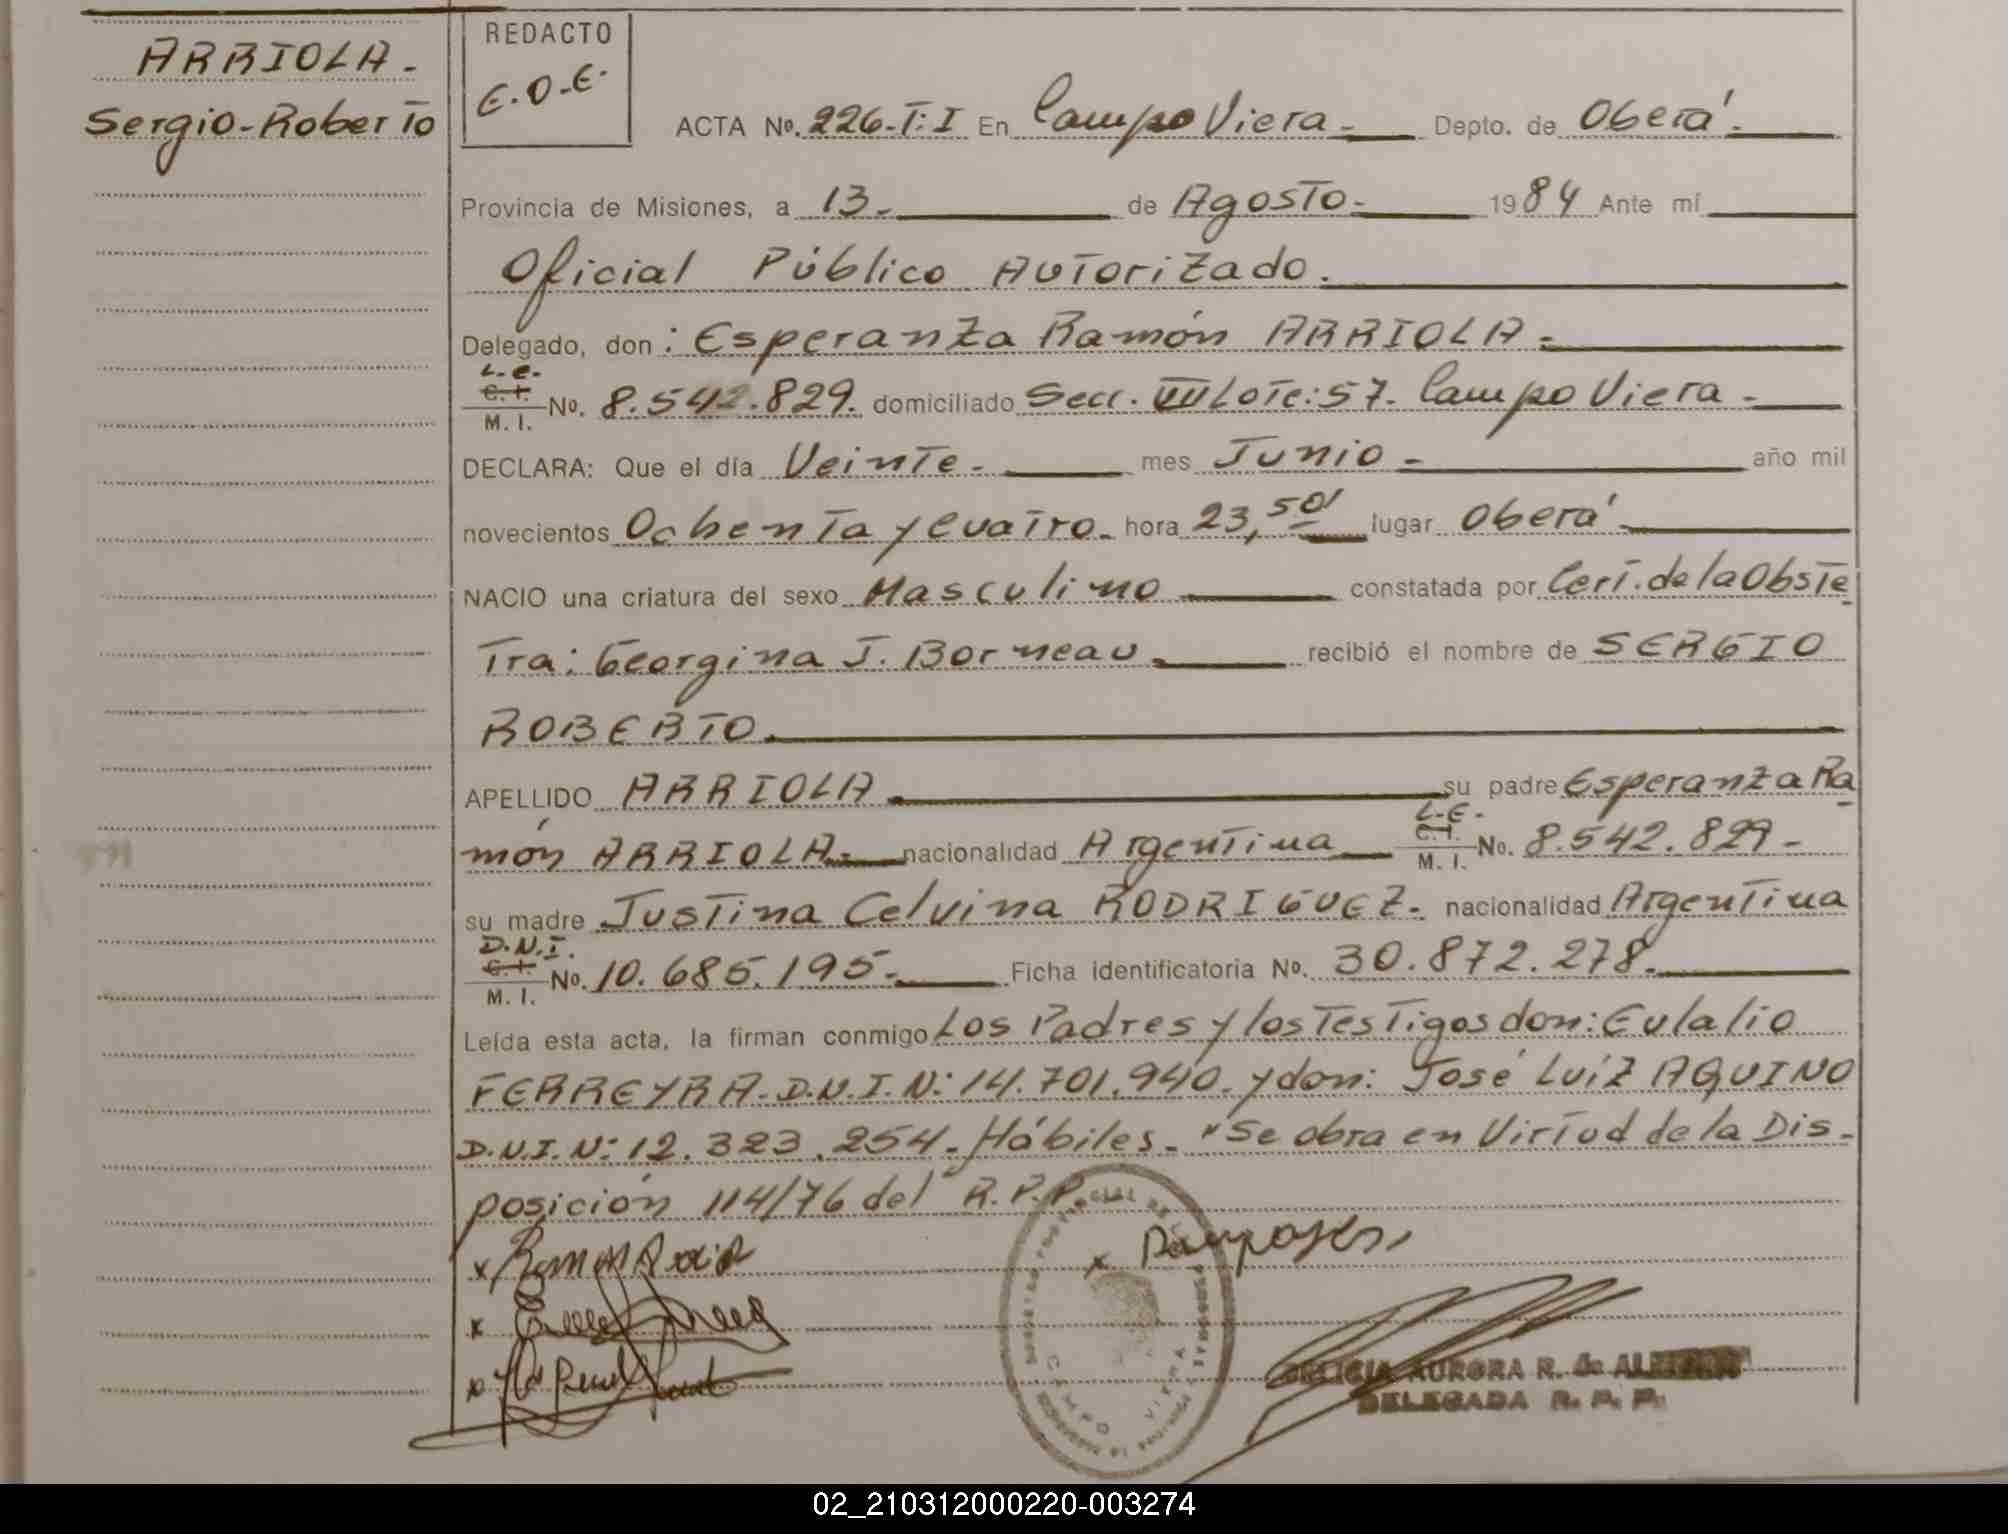 ARRIOLA.
Sergio-Roberto
REDACTO
E.O.E.
ACTA No. 226-T:I En Campo Viera Depto. de Oberá.
Provincia de Misiones, a 13. de Agosto. 1984 Ante mí
Oficial Público Autorizado.
Delegado, don: Esperanza Ramón ARRIOLA.
L.E. C.I. M. I. No. 8.542.829. domiciliado Secc. VIII Lote: 57. Campo Viera
DECLARA: Que el día Veinte. mes Junio. año mil
novecientos Ochenta y Cuatro. hora 23,50 lugar Oberá
NACIO una criatura del sexo Masculino constatada por Cert. de la Obste
tra: Georgina J. Borneau recibió el nombre de SERGIO
ROBERTO.
APELLIDO ARRIOLA su padre Esperanza Ra
món ARRIOLA. nacionalidad Argentina L.E. C.I. M. I. No. 8.542.829.
su madre Justina Celvina RODRIGUEZ. nacionalidad Argentina
D.N.I. C.I. M. I. No. 10.685.195. Ficha identificatoria No. 30.872.278.
Leída esta acta, la firman conmigo Los Padres y los Testigos don: Eulalio
FERREYRA. D.N.I. N: 14.701.940. y don: José Luíz AQUINO
D.N.I. N: 12.323.254. Hábiles. "Se obra en Virtud de la Dis-
posición 114/76 del R.P.P.
CAMPO VIERA
DELICIA AURORA R. de
DELEGADA R. P. P.
02_210312000220-003274